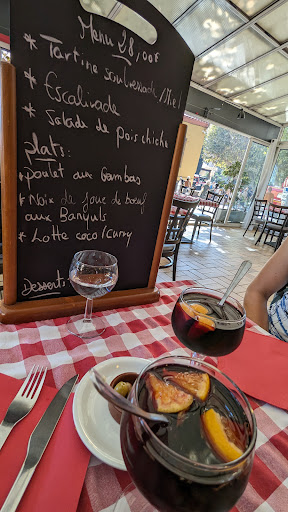 Menu 28,00€
* Tartine soubressade / Miel
* Escalivade
* Salade de pois chiche
plats:
* poulet aux Gambas
* Noix de Joue de boeuf
aux Banyuls
* Lotte coco/curry
Desserts